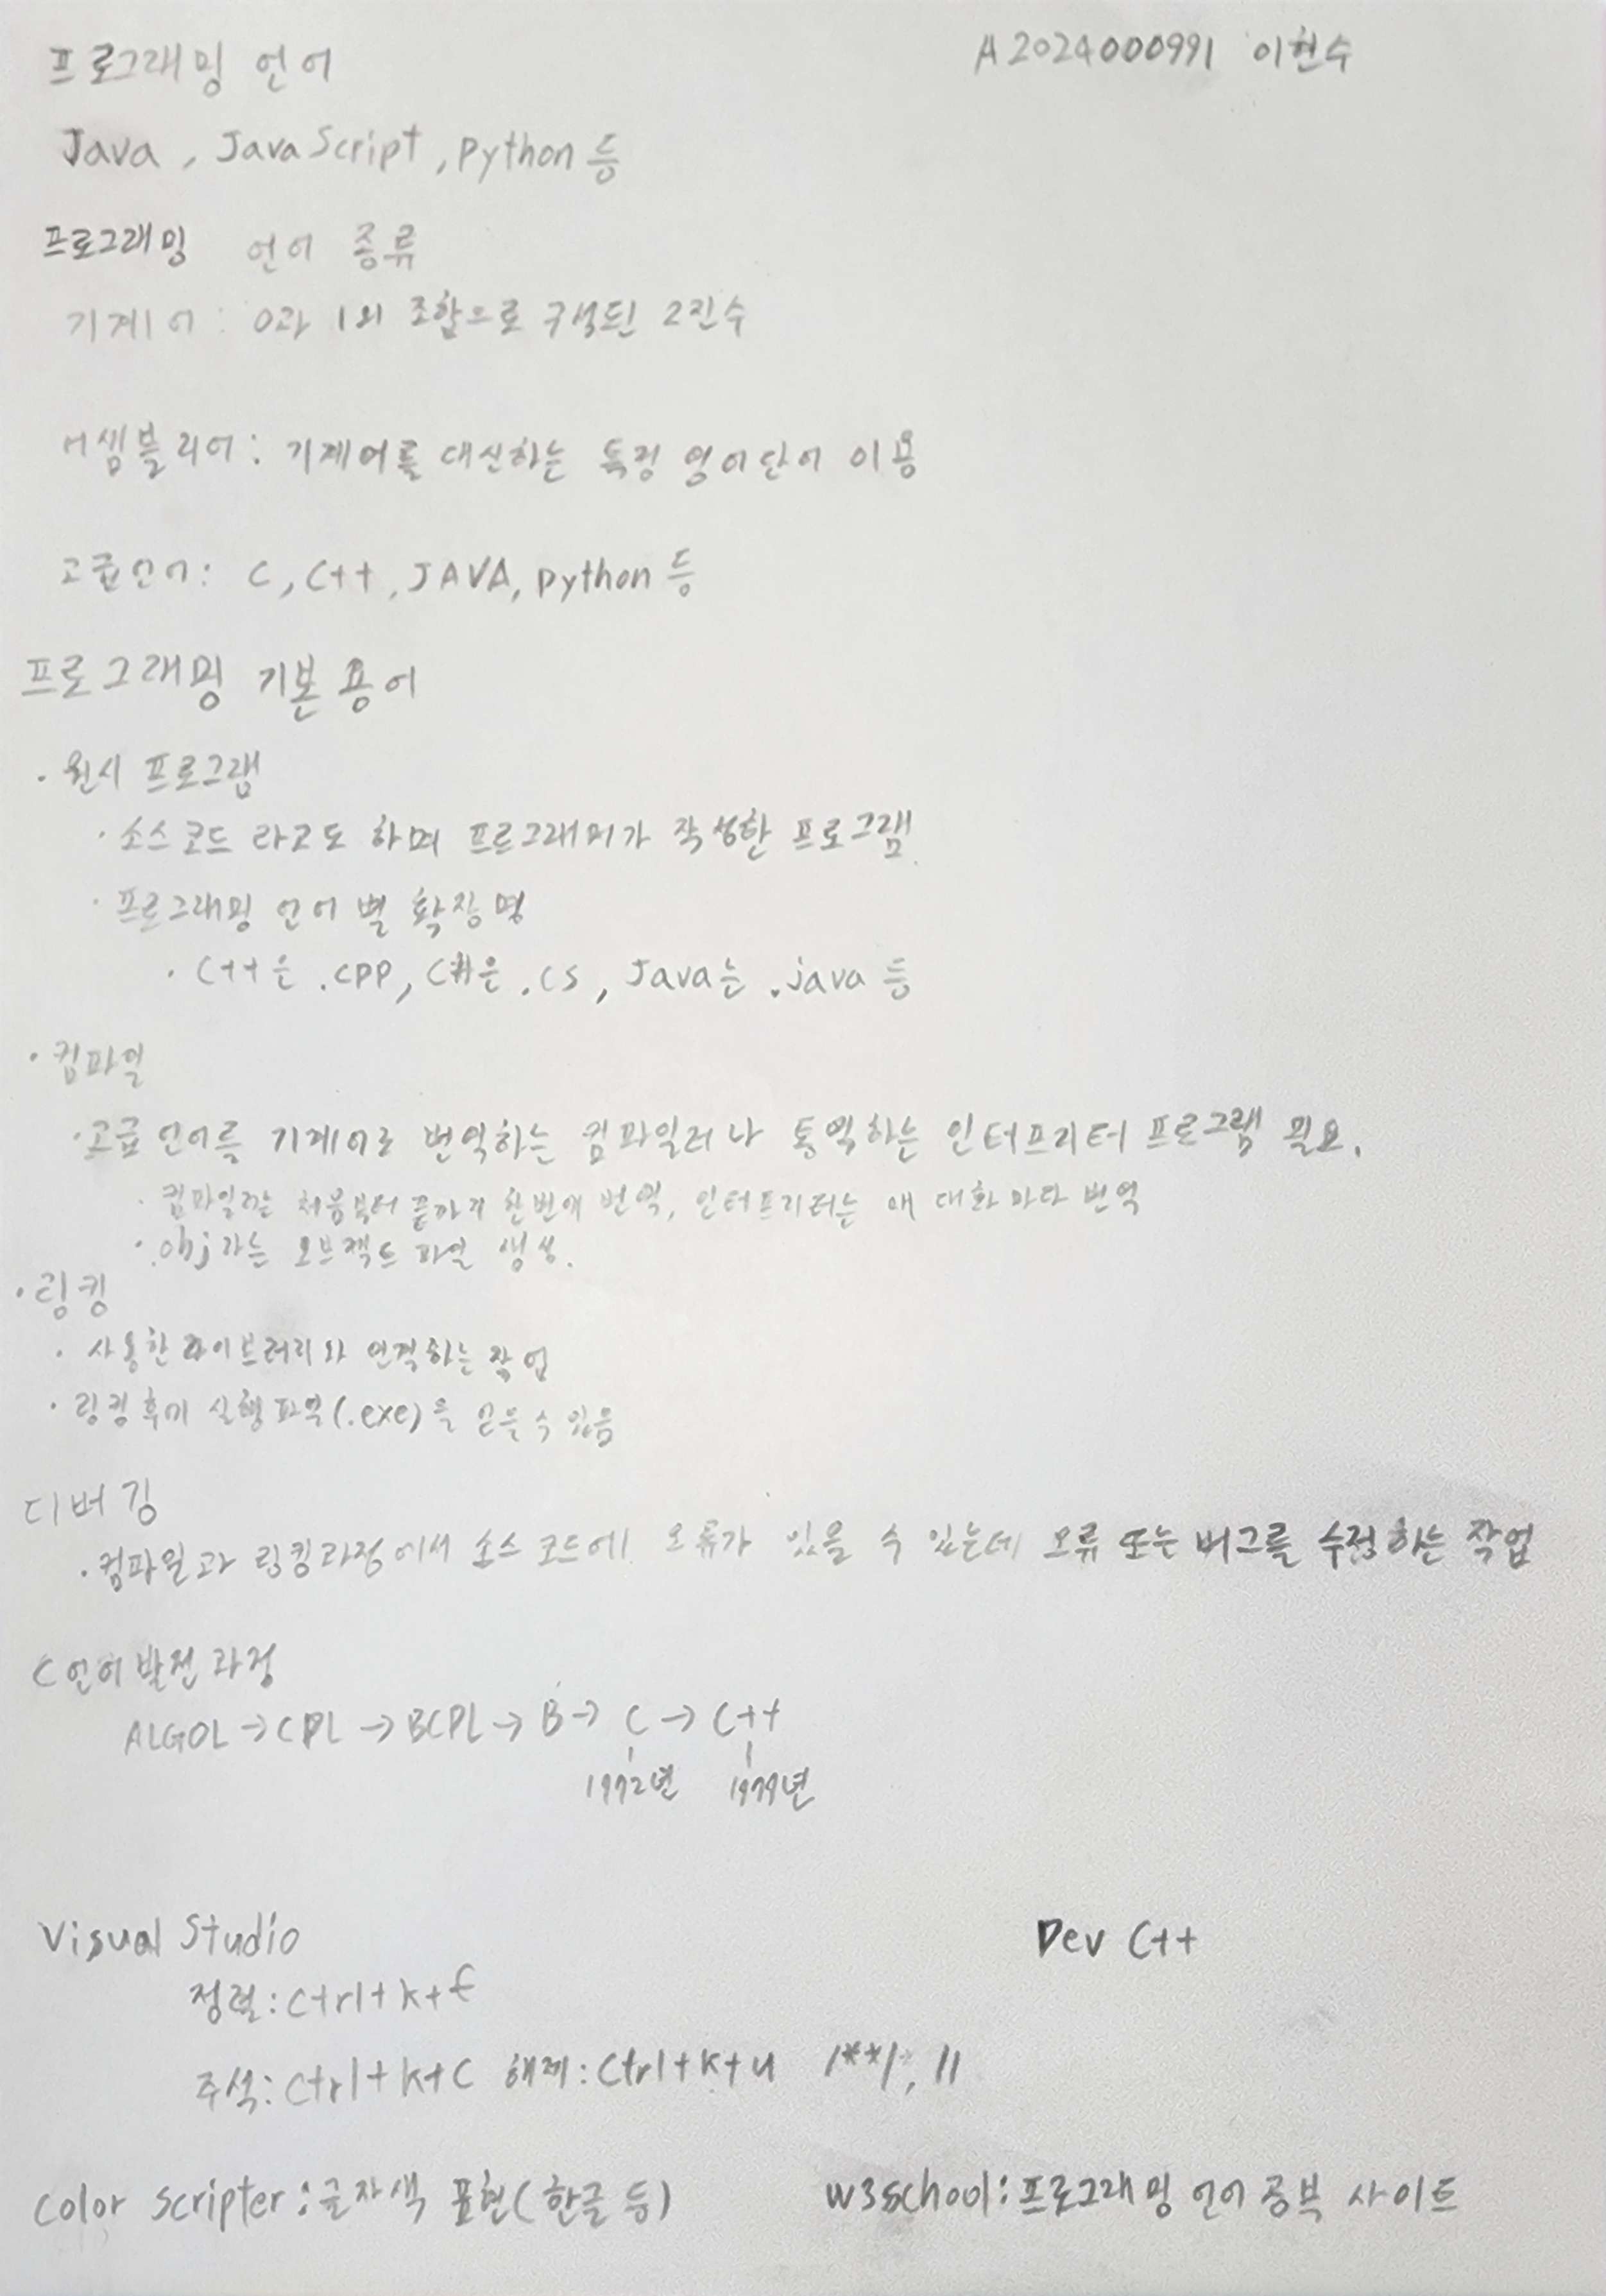 프로그래밍 언어
A2024000991 이현수
Java, JavaScript, python 등
프로그래밍 언어 종류
기계어: 0과 1의 조합으로 구성된 2진수
어셈블리어: 기계어를 대신하는 특정 영어단어 이용
고급언어: C, C++, JAVA, python 등
프로그래밍 기본 용어
· 원시 프로그램
· 소스 코드 라고도 하며 프로그래머가 작성한 프로그램.
· 프로그래밍 언어 별 확장명
· C++은 .cpp, C#은 .cs, Java는 .java 등
· 컴파일
· 고급 언어를 기계어로 번역하는 컴파일러나 통역하는 인터프리터 프로그램 필요.
· 컴파일러는 처음부터 끝까지 한번에 번역, 인터프리터는 매 대화마다 번역
· .obj라는 오브젝트 파일 생성.
· 링킹
· 사용한 라이브러리와 연결하는 작업
· 링킹 후에 실행 파일(.exe)을 얻을 수 있음
디버깅
· 컴파일과 링킹과정에서 소스 코드에 오류가 있을 수 있는데 오류 또는 버그를 수정하는 작업
C언어 발전 과정
ALGOL → CPL → BCPL → B → C → C++
1972년 1979년
Visual Studio
Dev C++
정렬: Ctrl+k+f
주석: Ctrl+k+C 해제: Ctrl+k+u /**/, //
Color scripter: 글자색 표현(한글 등)
w3school: 프로그래밍 언어 공부 사이트